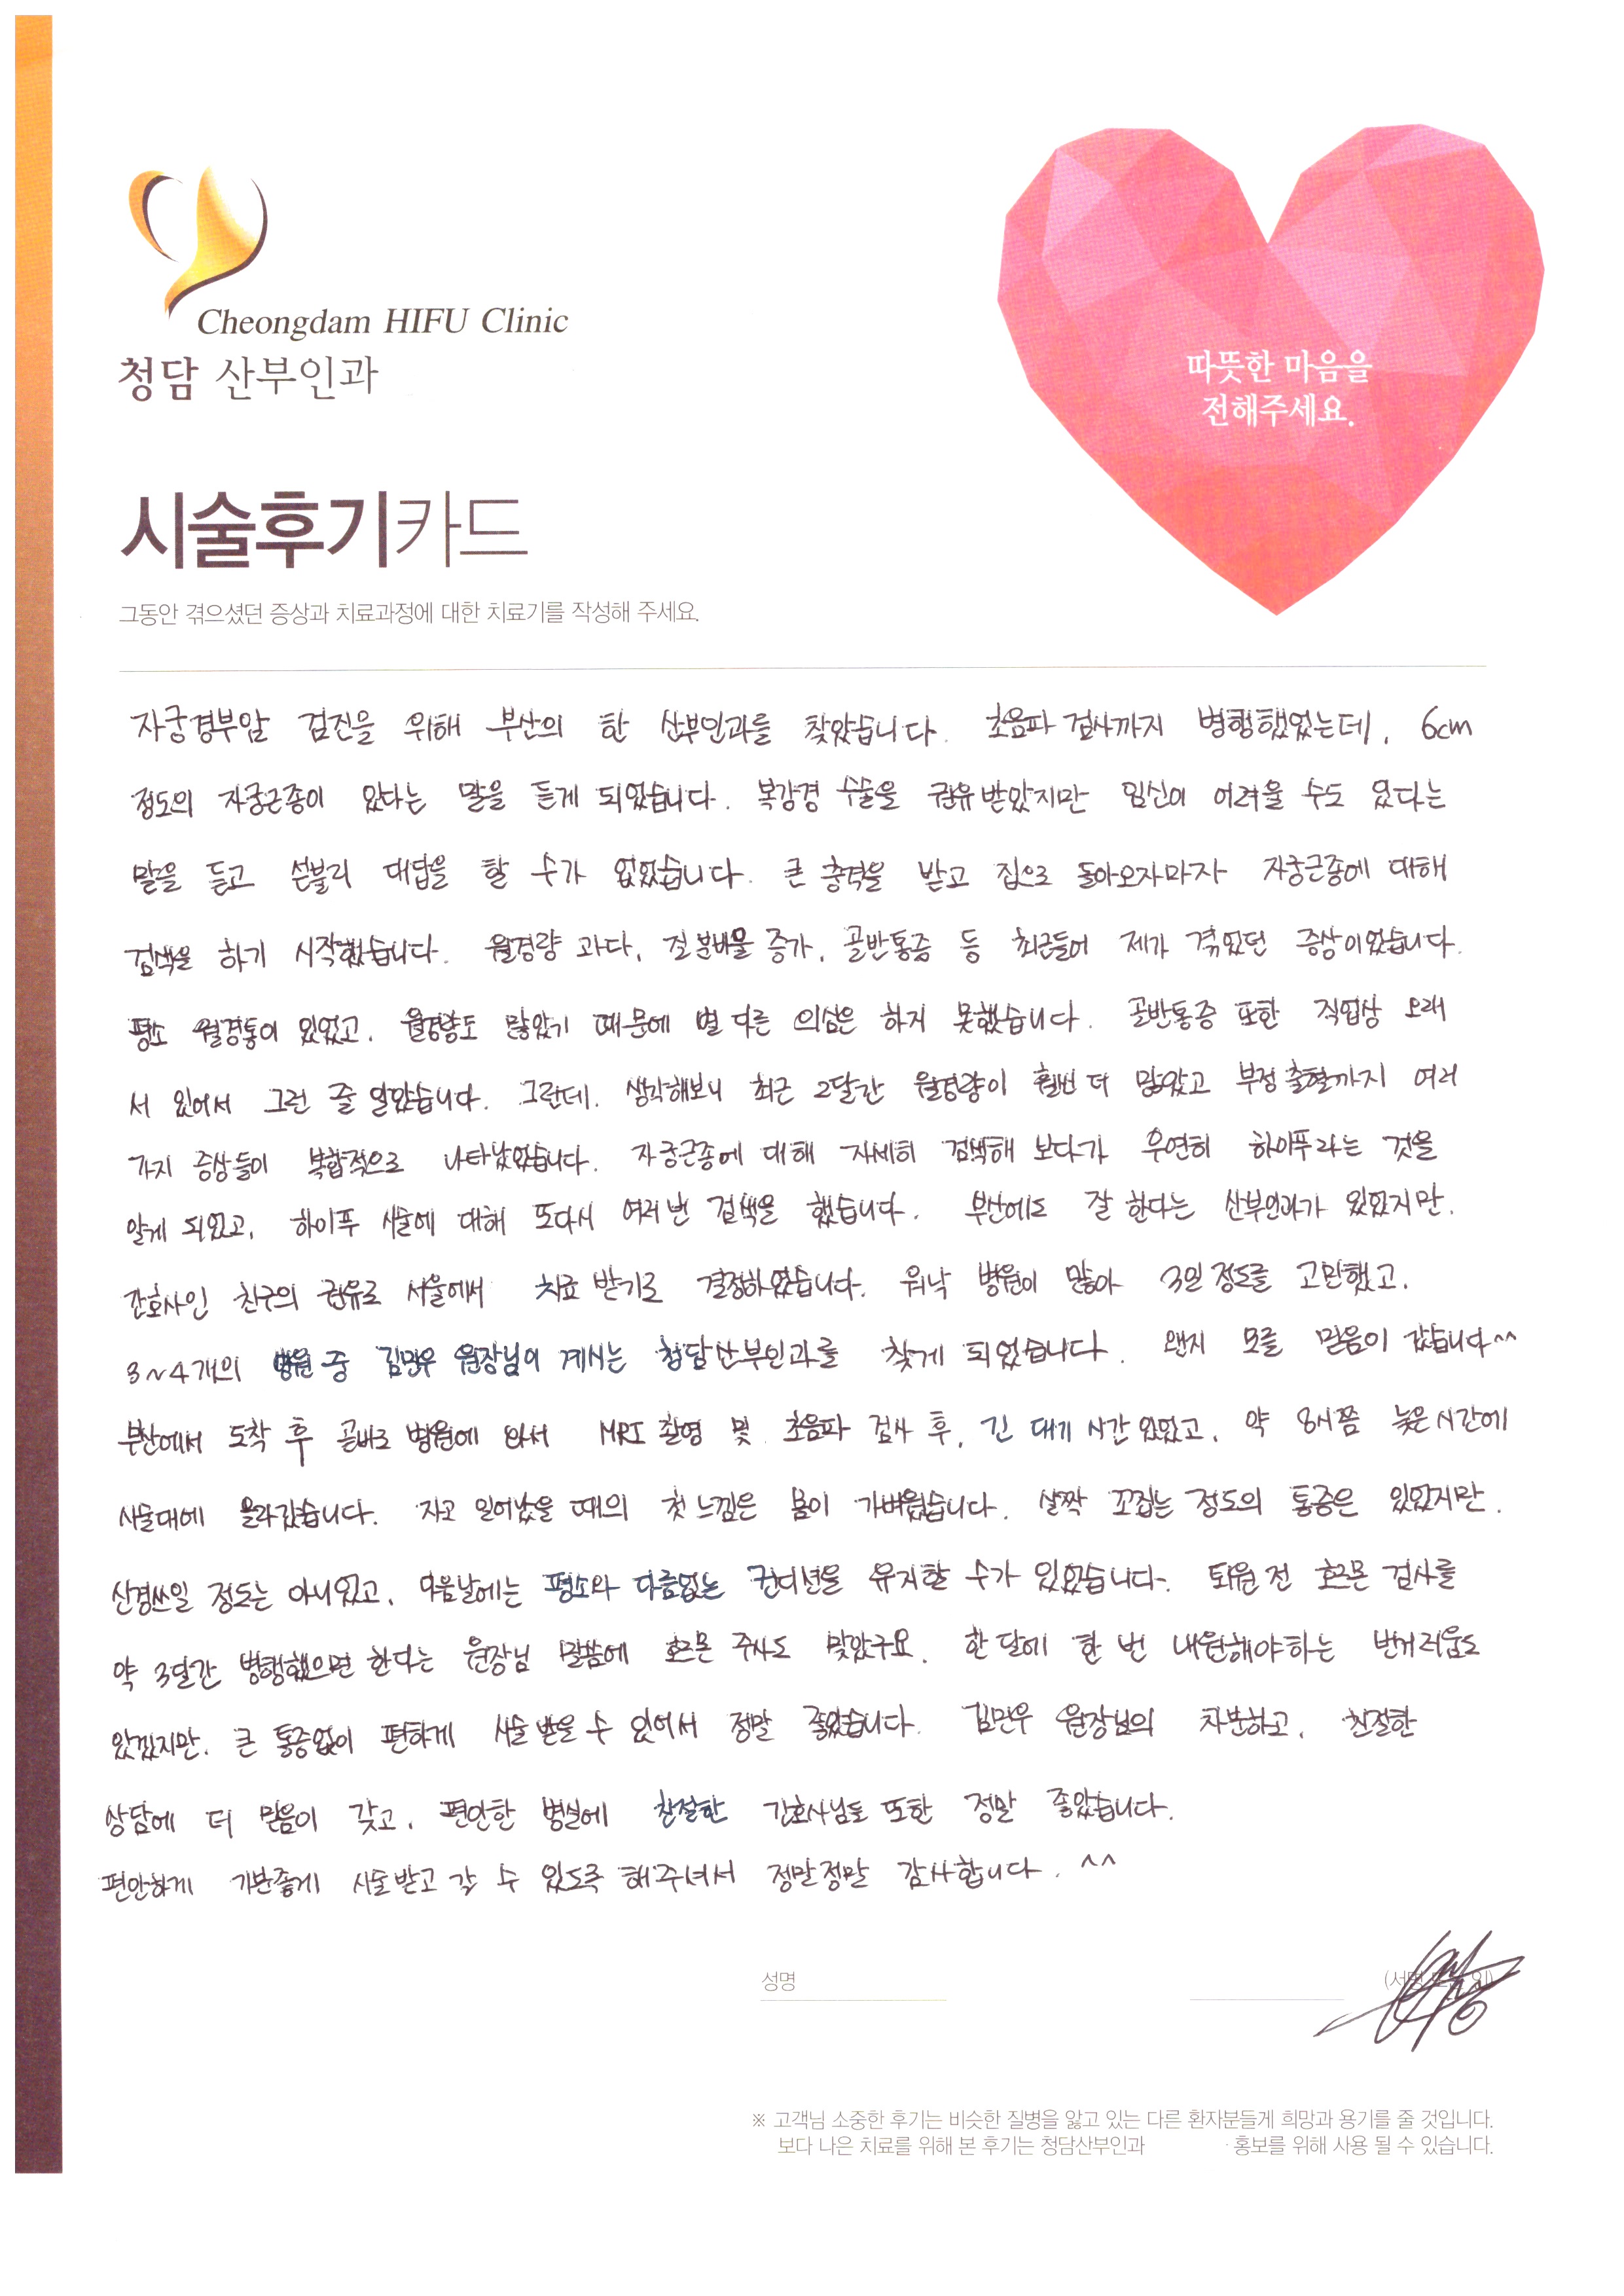 Cheongdam HIFU Clinic
청담 산부인과
따뜻한 마음을
전해주세요.
시술후기카드
그동안 겪으셨던 증상과 치료과정에 대한 치료기를 작성해 주세요.
자궁경부암 검진을 위해 부산의 한 산부인과를 찾았습니다. 초음파 검사까지 병행했었는데, 6cm
정도의 자궁근종이 있다는 말을 듣게 되었습니다. 복강경 수술을 권유받았지만 임신이 어려울 수도 있다는
말을 듣고 섣불리 대답을 할 수가 없었습니다. 큰 충격을 받고 집으로 돌아오자마자 자궁근종에 대해
검색을 하기 시작했습니다. 월경량 과다, 질 분비물 증가, 골반통증 등 최근들어 제가 겪었던 증상이었습니다.
평소 월경통이 있었고, 월경량도 많았기 때문에 별 다른 의심은 하지 못했습니다. 골반통증 또한 직업상 오래
서 있어서 그런 줄 알았습니다. 그런데, 생각해보니 최근 2달간 월경량이 훨씬 더 많았고 부정출혈까지 여러
가지 증상들이 복합적으로 나타났었습니다. 자궁근종에 대해 자세히 검색해 보다가 우연히 하이푸라는 것을
알게 되었고, 하이푸 시술에 대해 또다시 여러번 검색을 했습니다. 부산에도 잘 한다는 산부인과가 있었지만,
간호사인 친구의 권유로 서울에서 치료 받기로 결정하였습니다. 워낙 병원이 많아 3일 정도를 고민했고,
3~4개의 병원 중 김민우 원장님이 계시는 청담산부인과를 찾게 되었습니다. 왠지 모를 믿음이 갔습니다^^
부산에서 도착 후 곧바로 병원에 와서 MRI 촬영 및 초음파 검사 후, 긴 대기 시간 있었고, 약 8시쯤 늦은 시간에
시술대에 올라갔습니다. 자고 일어났을 때의 첫 느낌은 몸이 가벼웠습니다. 살짝 꼬집는 정도의 통증은 있었지만,
신경쓰일 정도는 아니었고, 다음날에는 평소와 다름없는 컨디션을 유지할 수가 있었습니다. 퇴원 전 호르몬 검사를
약 3달간 병행했으면 한다는 원장님 말씀에 호르몬 주사도 맞았구요. 한 달에 한 번 내원해야하는 번거러움도
있겠지만, 큰 통증없이 편하게 시술 받을 수 있어서 정말 좋았습니다. 김민우 원장님의 차분하고, 친절한
상담에 더 믿음이 갖고, 편안한 병실에 친절한 간호사님도 또한 정말 좋았습니다.
편안하게 기분좋게 시술받고 갈 수 있도록 해주셔서 정말정말 감사합니다. ^^
성명
(서명 또는 인)
※ 고객님 소중한 후기는 비슷한 질병을 앓고 있는 다른 환자분들게 희망과 용기를 줄 것입니다.
보다 나은 치료를 위해 본 후기는 청담산부인과 홍보를 위해 사용 될 수 있습니다.